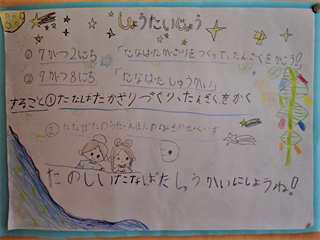 しょうたいじょう
① 7がつ2にち 「たなばたかざりをつくって、たんざくをかこう!
② 7がつ8にち 「たなばたしゅうかい」
すること①たなばたかざりづくり、たんざくをかく
② たなばたのうた
たのしいたなばたしゅうかいにしようね!